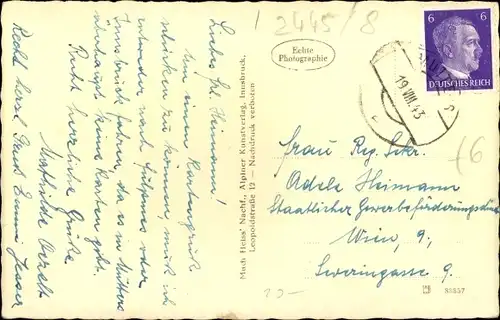 2445/8
Echte
Photographie
6 6
DEUTSCHES REICH
19.VIII.43
Liebes Frl. Heimann!
Um einen Kartengruß
schicken zu können, muß ich
entweder nach Fulpmes oder
Innsbruck fahren, da es in Mutters
überhaupt keine Karten gibt.
Recht herzliche Grüße
Mathilde
Recht herzl. Gruß Emmi
Much Heiss' Nachf., Alpiner Kunstverlag, Innsbruck,
Leopoldstraße 12 — Nachdruck verboten
Frau Reg. Sekr.
Adele Heimann
Staatlicher Gewerbeförderungsdienst
Wien, 9;
Severingasse 9.